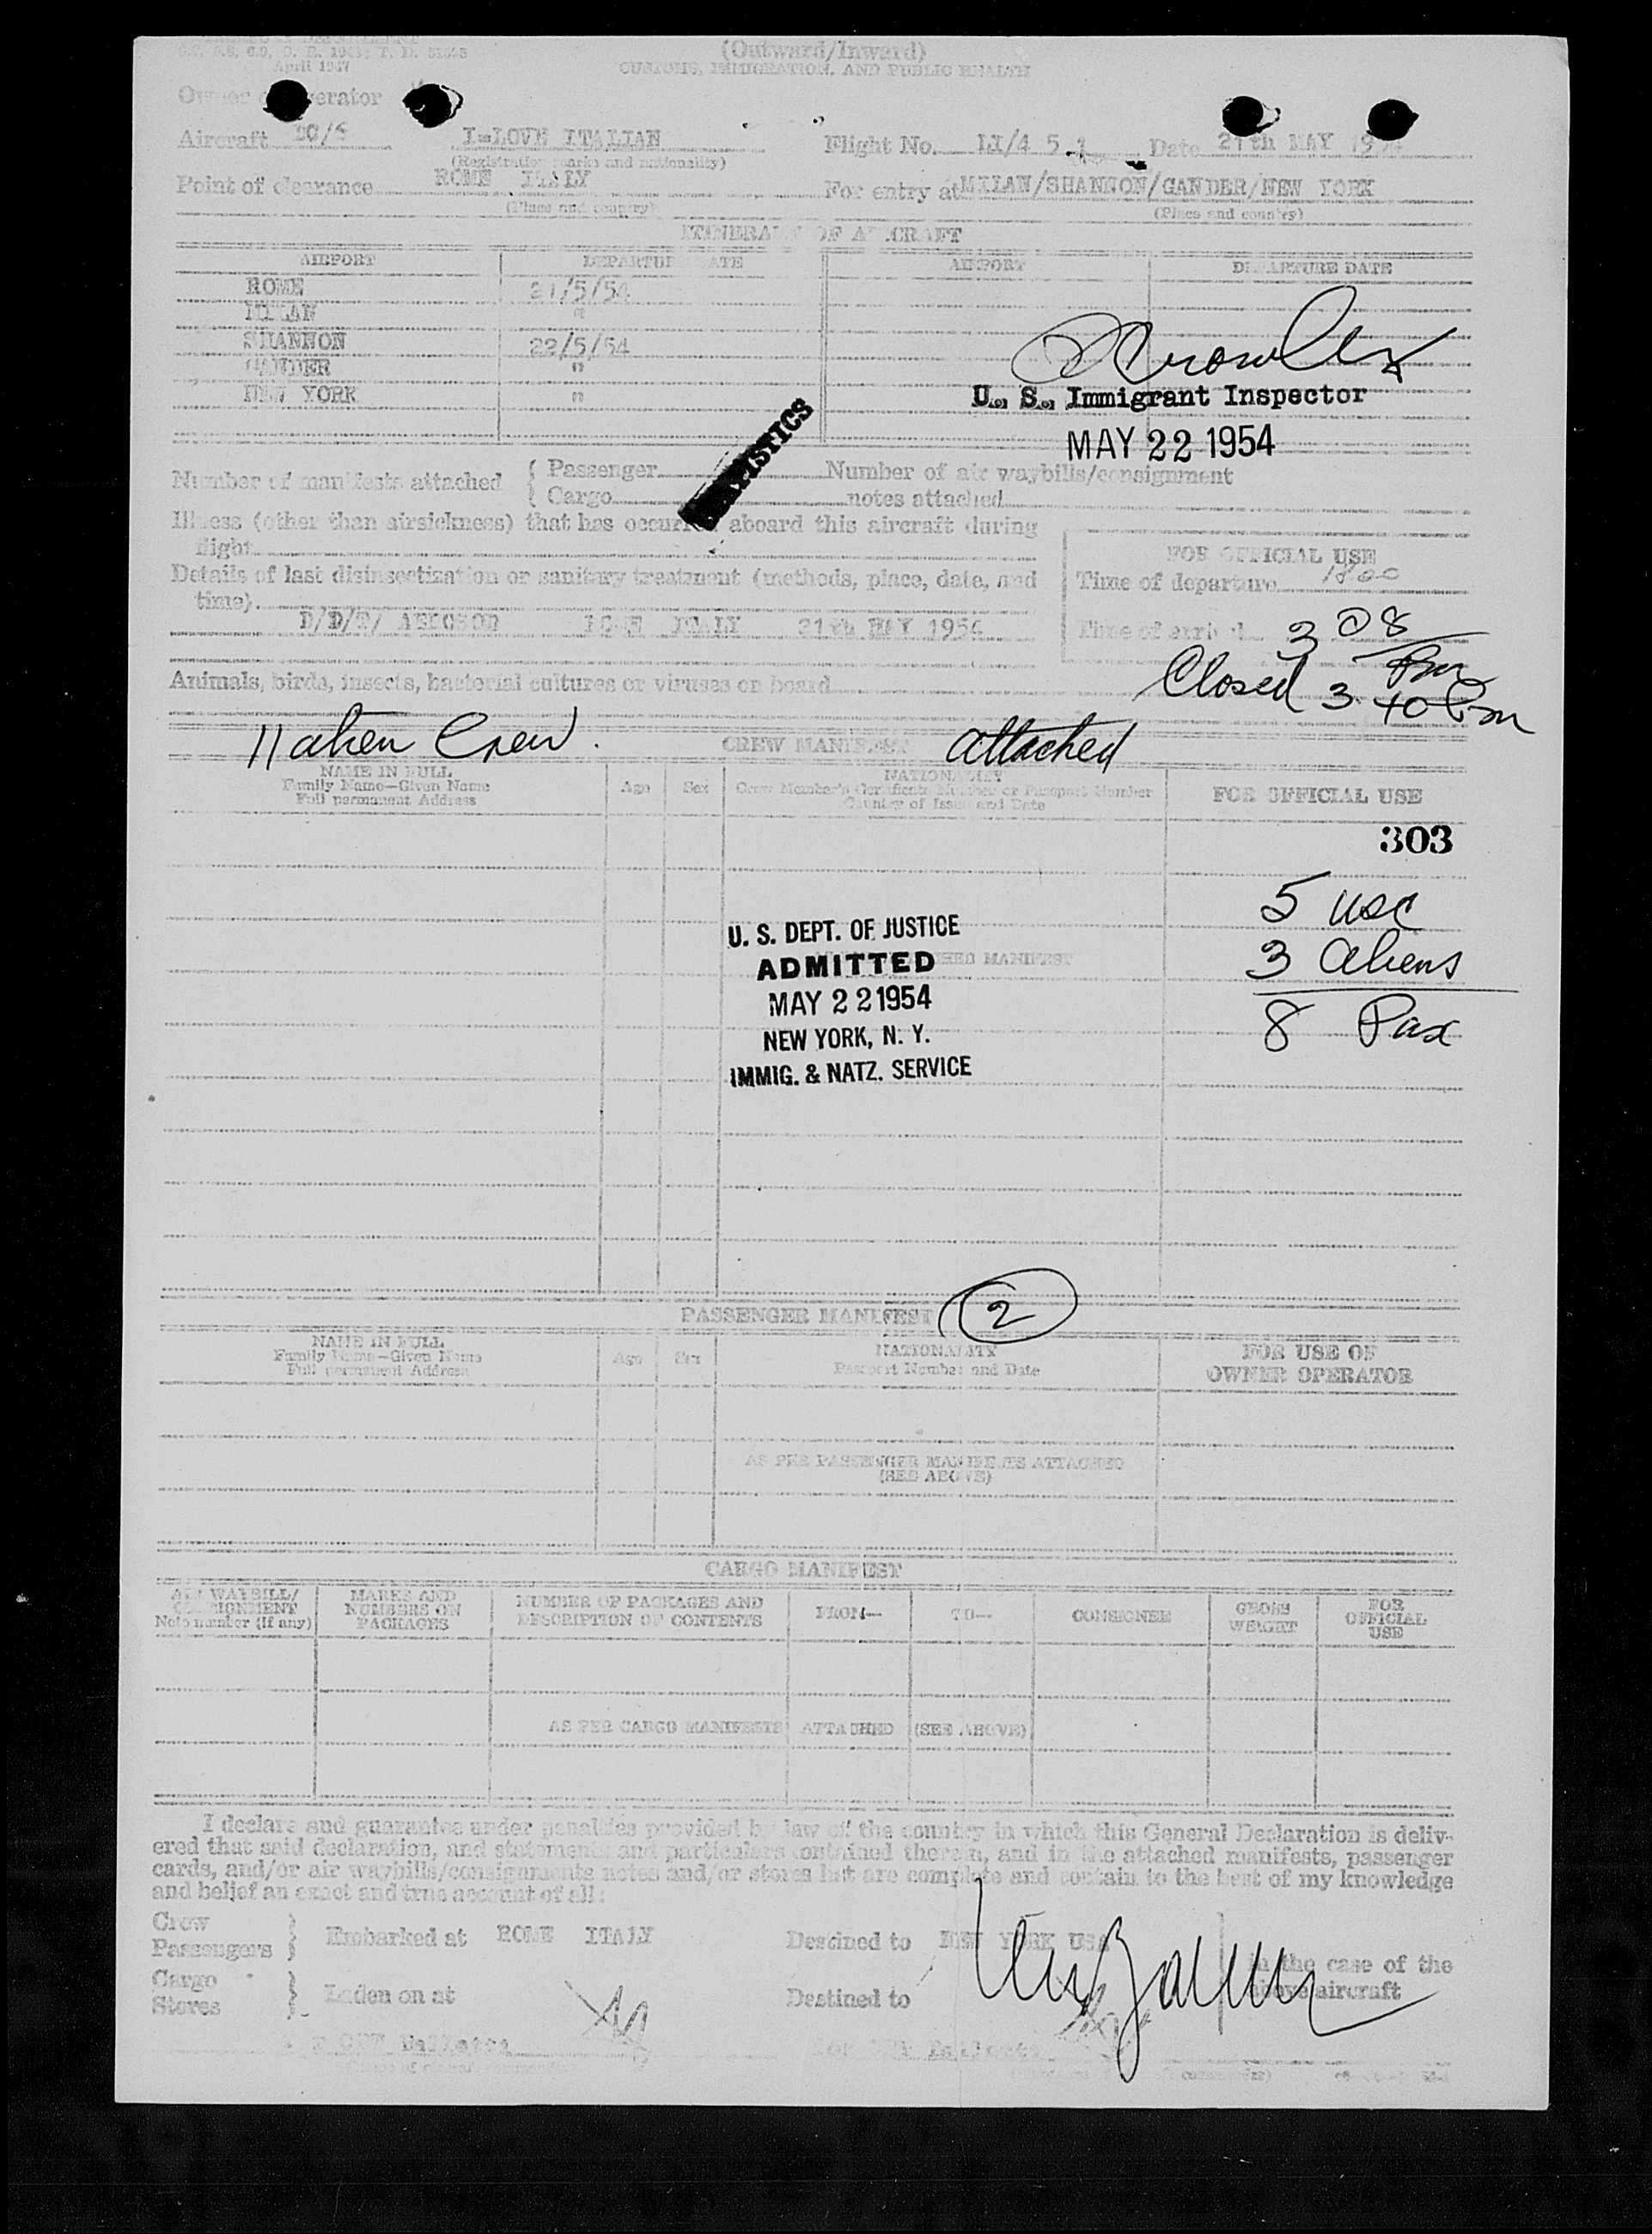 (Outward/Inward)
CUSTOMS, IMMIGRATION, AND PUBLIC HEALTH
April 1947
Owner or Operator
Aircraft DC/6 I-LOVE ITALIAN Flight No. LI/4 5 1 Date 21th MAY 1954
(Registration marks and nationality)
Point of clearance ROME ITALY For entry at MILAN/SHANNON/GANDER/NEW YORK
(Place and country) (Place and country)
ITINERARY OF AIRCRAFT
AIRPORT DEPARTURE DATE AIRPORT DEPARTURE DATE
ROME 21/5/54
MILAN "
SHANNON 22/5/54
GANDER "
NEW YORK "
U. S. Immigrant Inspector
MAY 22 1954
STATISTICS
Number of manifests attached { Passenger Number of air waybills/consignment
{ Cargo notes attached
Illness (other than airsickness) that has occurred aboard this aircraft during
flight
FOR OFFICIAL USE
Details of last disinsectization or sanitary treatment (methods, place, date, and
time).
Time of departure 1800
D/D/T/ ROME ITALY 21th MAY 1954
Time of arrival 3 08 pm
Closed 3 40 pm
Animals, birds, insects, bacterial cultures or viruses on board
11 alien Crew. CREW MANIFEST attached
NAME IN FULL
Family Name—Given Name
Full permanent Address
Age Sex
NATIONALITY
Crew Member's Certificate Number or Passport Number
Country of Issue and Date
FOR OFFICIAL USE
303
5 usc
3 aliens
8 Pax
MANIFEST
U. S. DEPT. OF JUSTICE
ADMITTED
MAY 22 1954
NEW YORK, N. Y.
IMMIG. & NATZ. SERVICE
PASSENGER MANIFEST 2
NAME IN FULL
Family Name—Given Name
Full permanent Address
Age Sex
NATIONALITY
Passport Number and Date
FOR USE OF
OWNER OPERATOR
AS PER PASSENGER MANIFESTS ATTACHED
(SEE ABOVE)
CARGO MANIFEST
AIR WAYBILL/
CONSIGNMENT
Note number (if any)
MARKS AND
NUMBERS ON
PACKAGES
NUMBER OF PACKAGES AND
DESCRIPTION OF CONTENTS
FROM— TO— CONSIGNEE
GROSS
WEIGHT
FOR
OFFICIAL
USE
AS PER CARGO MANIFESTS ATTACHED (SEE ABOVE)
I declare and guarantee under penalties provided by law of the country in which this General Declaration is deliv-
ered that said declaration, and statements and particulars contained therein, and in the attached manifests, passenger
cards, and/or air waybills/consignments notes and/or stores list are complete and contain to the best of my knowledge
and belief an exact and true account of all:
Crew
Passengers } Embarked at ROME ITALY Destined to NEW YORK USA
in the case of the
above aircraft
Cargo
Stores } Laden on at Destined to